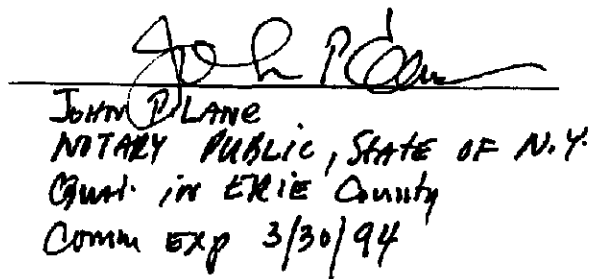 John P. Lane
JOHN P. LANE
NOTARY PUBLIC, STATE OF N.Y.
Qual. in ERIE County
Comm EXP 3/30/94